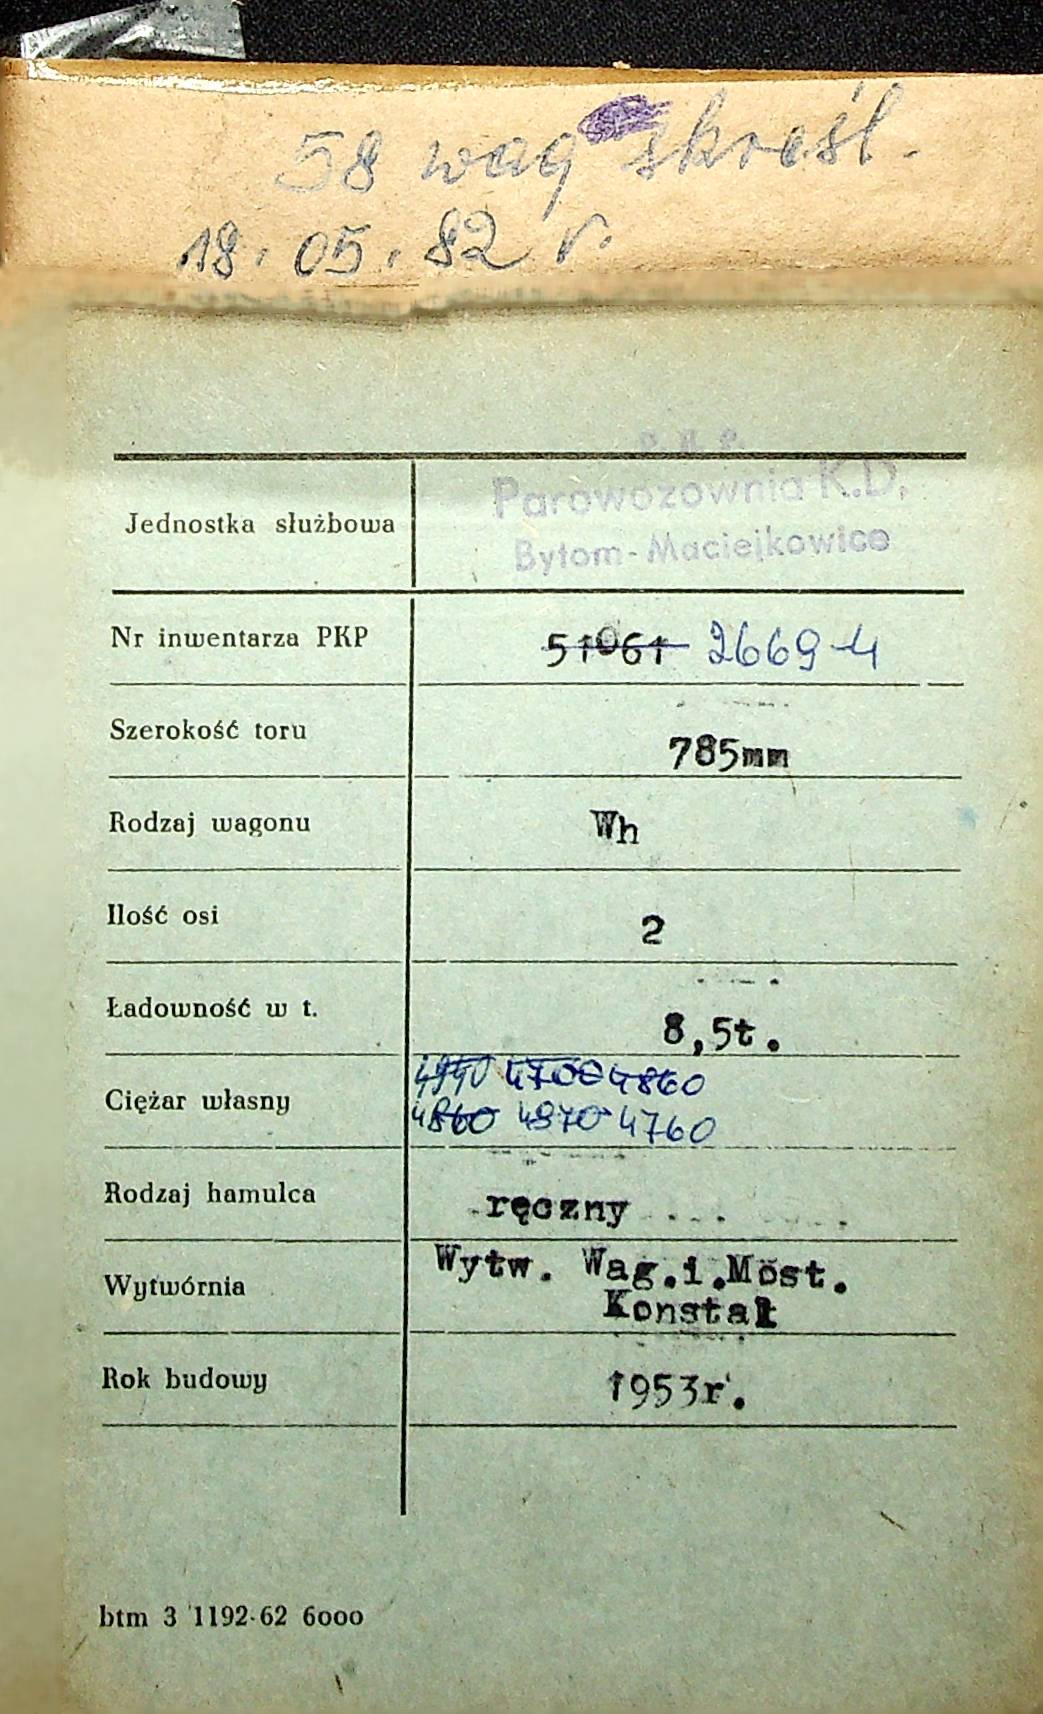 58 wag skreśl.
18.05.82 r.
Parowozownia K.D.
Jednostka służbowa
Bytom-Maciejkowice
Nr inwentarza PKP 51061 2669-4
Szerokość toru 785mm
Rodzaj wagonu Wh
Ilość osi 2
Ładowność w t. 8,5t.
4940 4700 4860
Ciężar własny
4860 4970 4760
Rodzaj hamulca ręczny
Wytw. Wag.i.Most.
Wytwórnia
Konstal
Rok budowy 1953r.
btm 3 1192-62 6000